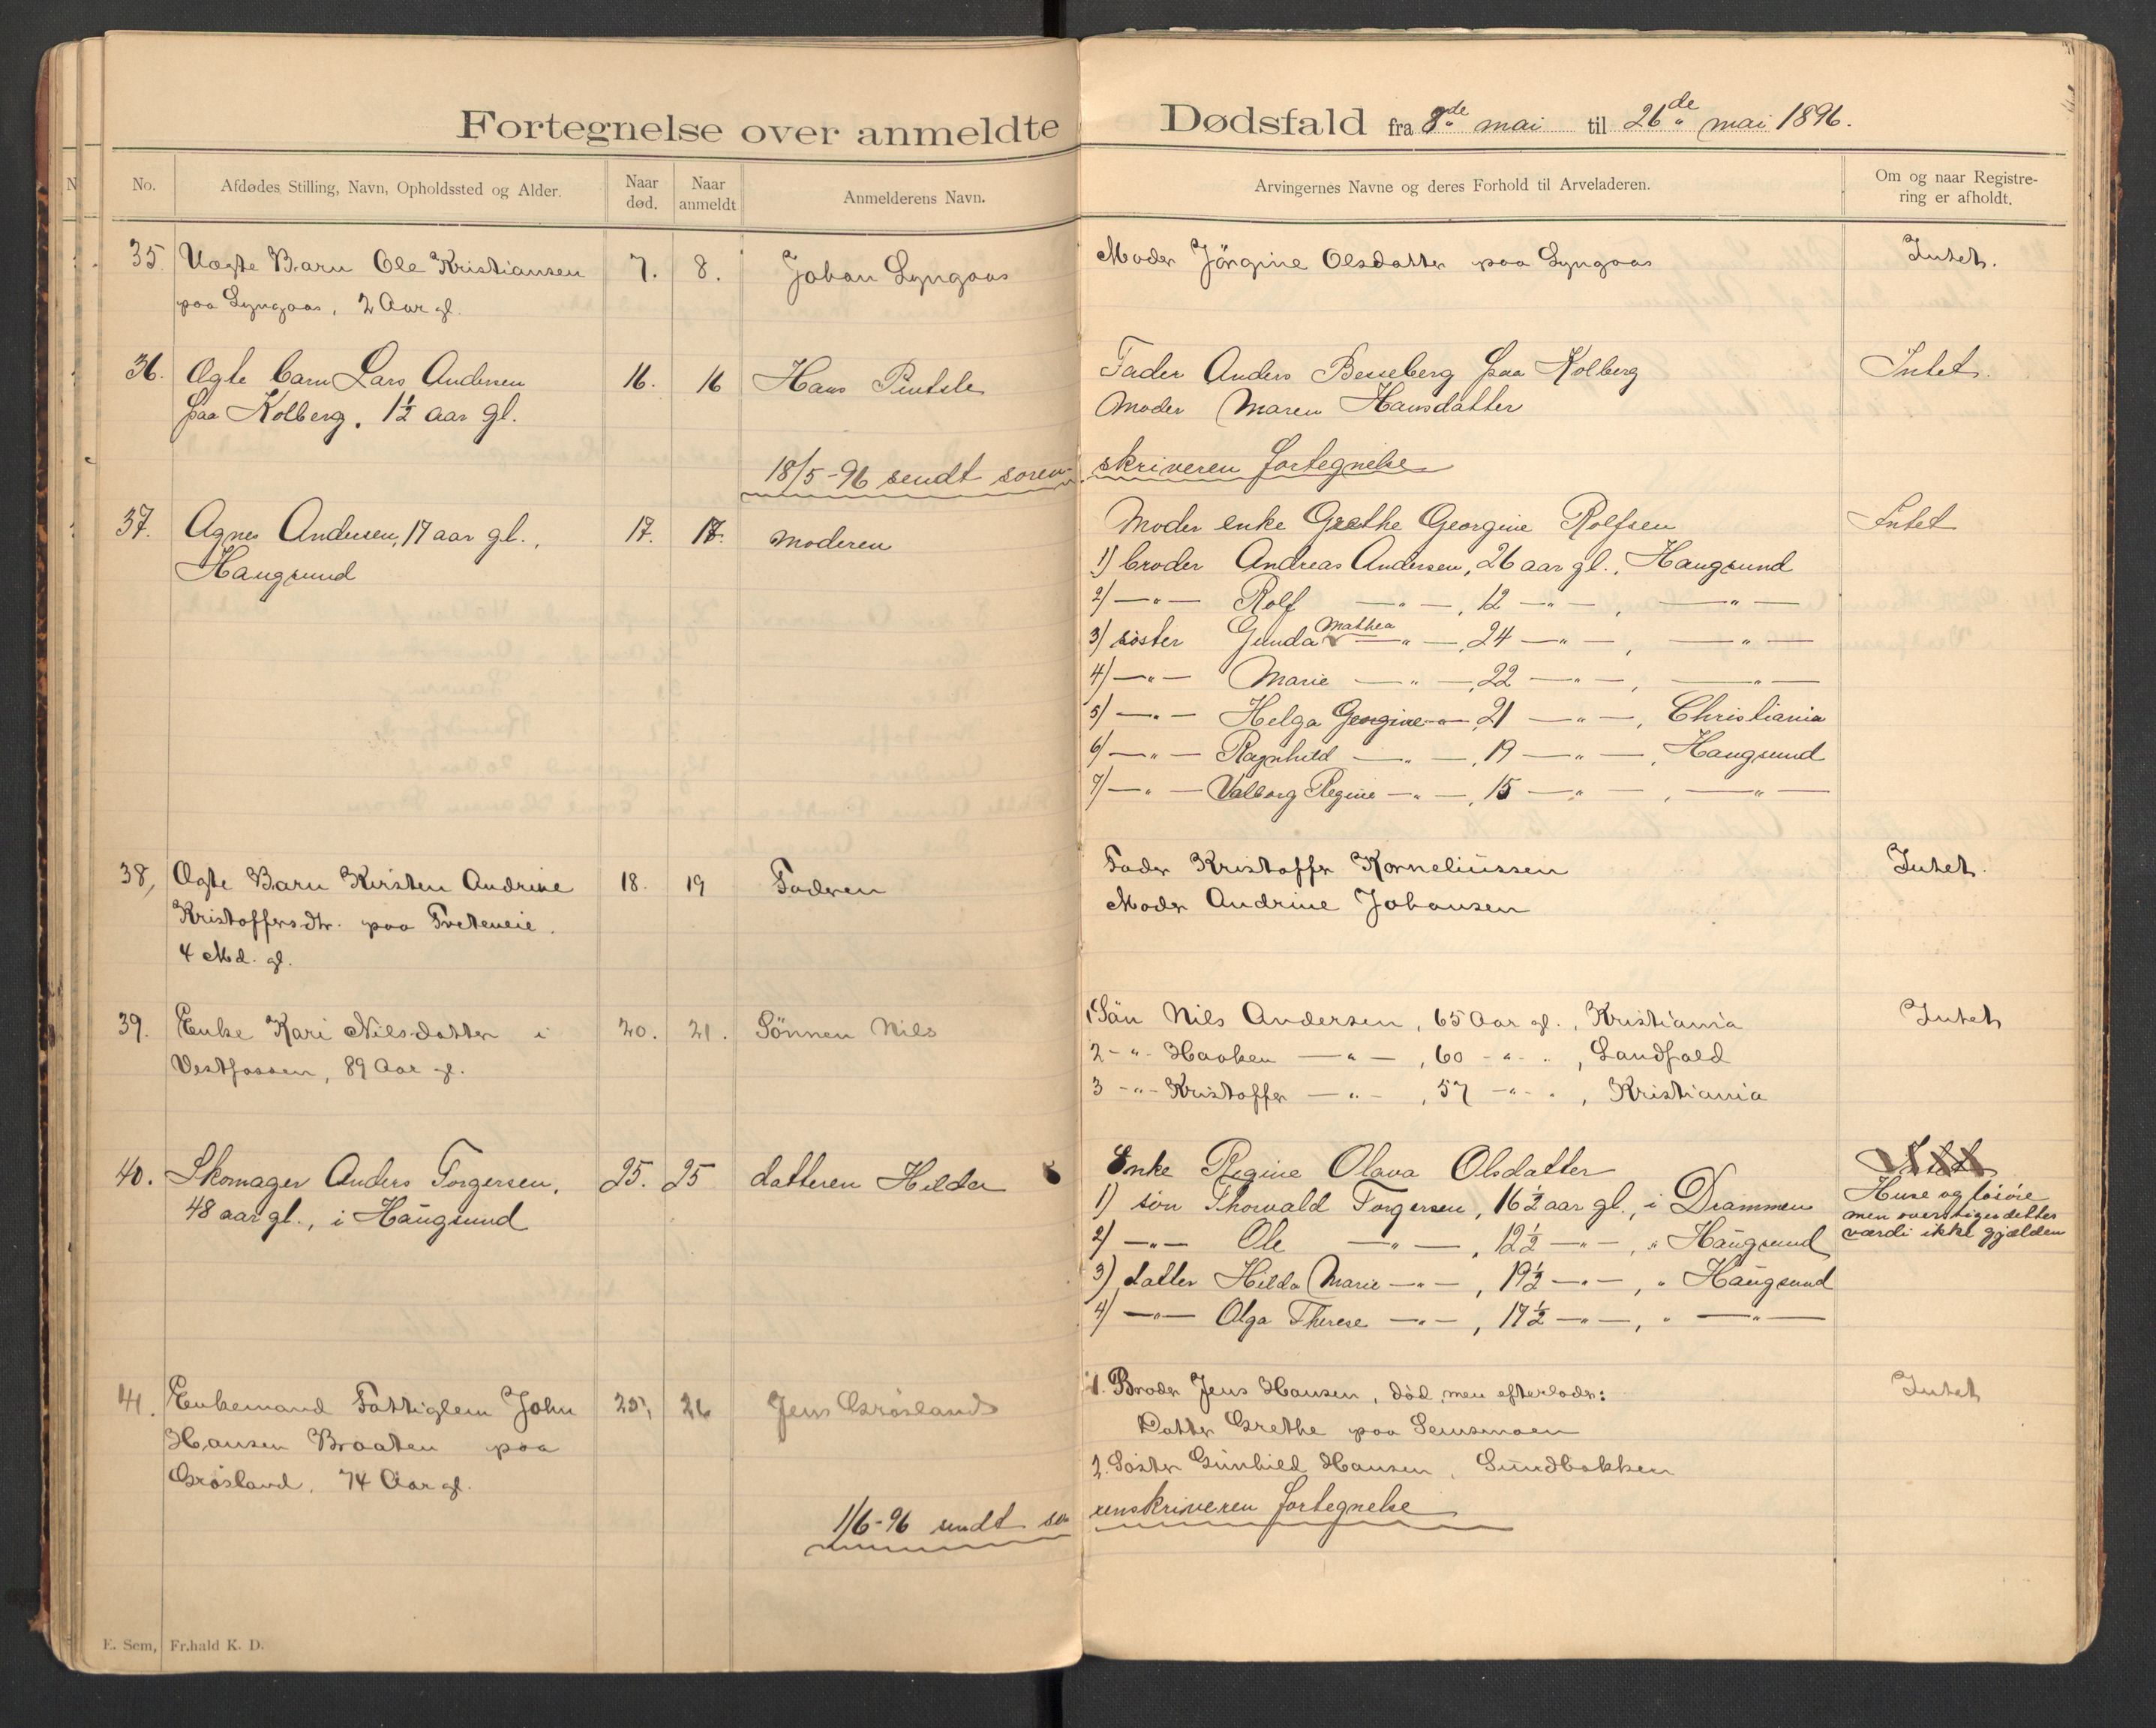 Fortegnelse over anmeldte Dødsfald fra 8de mai til 26de mai 1896.
No. Afdødes Stilling, Navn, Opholdssted og Alder. Naar død. Naar anmeldt Anmelderens Navn. Arvingernes Navne og deres Forhold til Arveladeren. Om og naar Registrering er afholdt.
35. Uægte Barn Ole Kristiansen 7. 8. Johan Lyngaas Moder Jörgine Olsdatter paa Lyngaas Intet.
paa Lyngaas, 2 Aar gl.
36. Ægte barn Lars Andersen 16. 16 Hans Fader Anders Besseberg paa Kolberg Intet.
paa Kolberg, 1½ aar gl. Moder Maren Hansdatter
18/5-96 sendt sorenskriveren fortegnelse
37. Agnes Andersen, 17 aar gl., 17. 18. moderen Moder enke Grethe Georgine Rolfsen Intet
Haugsund 1) broder Andreas Andersen, 26 aar gl., Haugsund
2) —"— Rolf —"—, 12 —"—, —"—
3) söster Gunda Mathea —"—, 24 —"—, —"—
4) —"— Marie —"—, 22 —"—, —"—
5) —"— Helga Georgine —"—, 21 —"—, Christiania
6) —"— Ragnhild —"—, 19 —"—, Haugsund
7) —"— Valborg Regine —"—, 15 —"—, —"—
38, Ægte Barn Kirsten Andrine 18. 19 Faderen Fader Kristoffer Korneliussen Intet.
Kristoffersdtr. paa Tveteneie. Moder Andrine Johansen
4 Md. gl.
39. Enke Kari Nilsdatter i 20. 21. Sönnen Nils 1 Sön Nils Andersen, 65 Aar gl., Kristiania Intet
Vestfossen, 89 Aar gl. 2 -"- Haaken —"—, 60 -"-, Landfald
3 -"- Kristoffer —"—, 57 -"-, Kristiania
40. Skomager Anders Torgersen, 25. 25 datteren Hilda Enke Regine Olava Olsdatter Intet
48 aar gl., i Haugsund 1) sön Thorvald Torgersen, 16½ aar gl., i Drammen Huse og lösöre
men overstiger dettes
2) —"— Ole —"—, 12½ —"—, " Haugsund værdi ikke gjælden
3) datter Hilda Marie —"—, 19½ —"—, " Haugsund
4) —"— Olga Therese —"—, 17½ —"—, " —"—
41. Enkemand Fattiglem John 25, 26 Jens Grøsland 1. Broder Jens Hansen, död, men efterlader: Intet
Hansen Braaten paa Datter Grethe paa Semsmoen
Grøsland, 74 Aar gl. 2. Söster Gunhild Hansen, Sundbakken
1/6-96 sendt sorenskriveren fortegnelse
E. Sem, Fr.hald K. D.